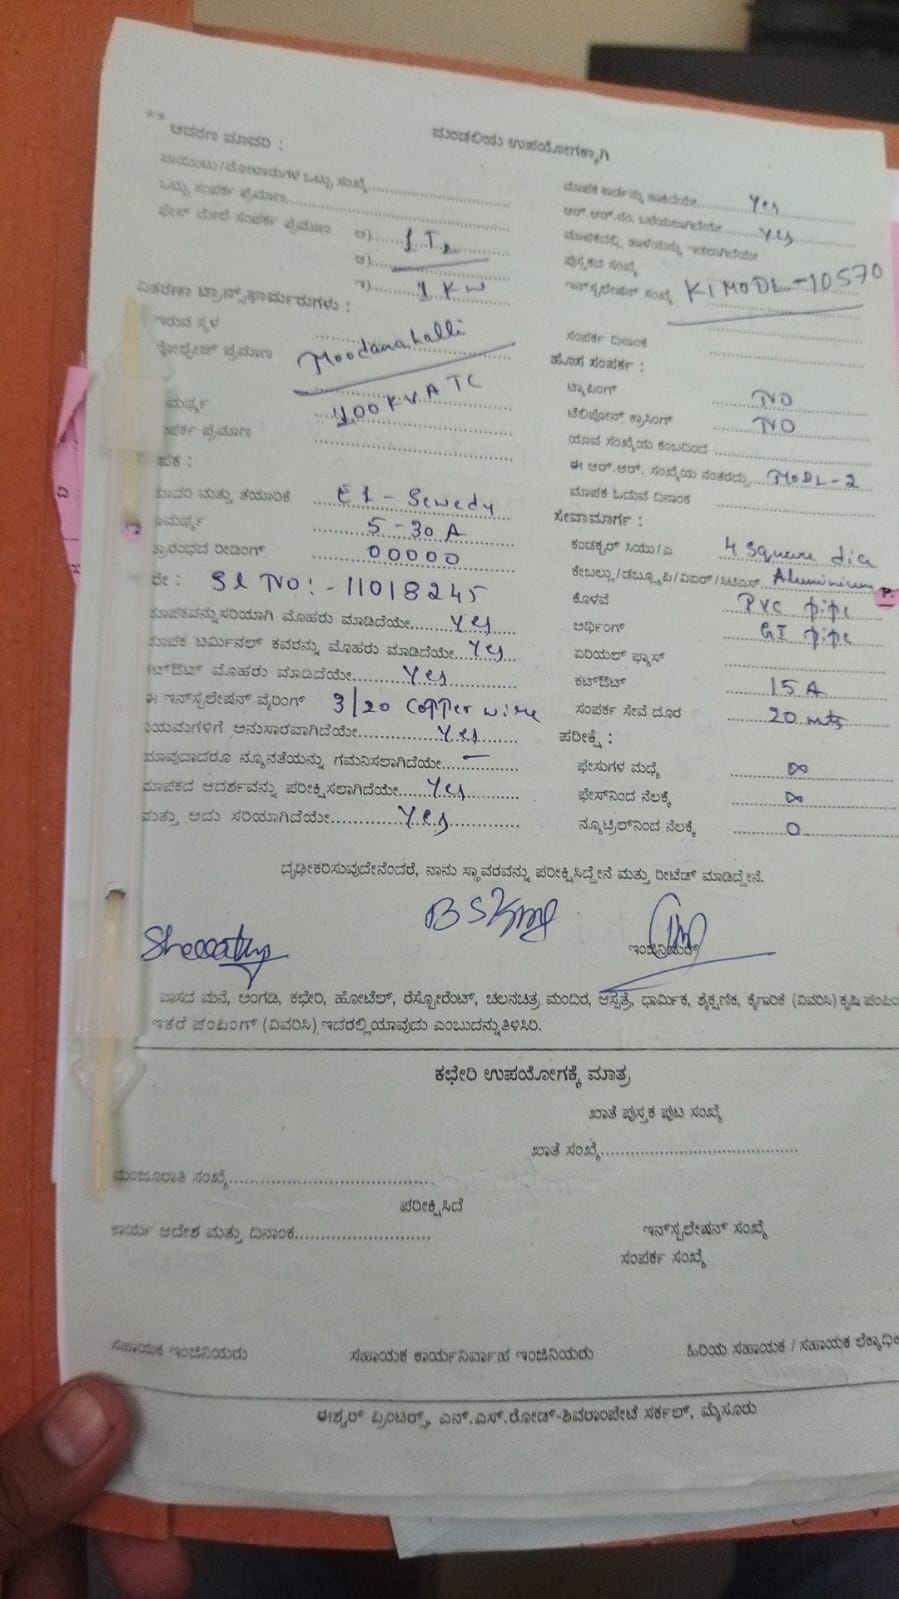 **
ಆವರಣ ಮಾದರಿ :
ಮಂಡಲಿಯ ಉಪಯೋಗಕ್ಕಾಗಿ
ಪಾಯಿಂಟು/ಮೋಟಾರುಗಳ ಒಟ್ಟು ಸಂಖ್ಯೆ
ಒಟ್ಟು ಸಂಪರ್ಕ ಪ್ರಮಾಣ
ಫೇಸ್ ಮೇಲೆ ಸಂಪರ್ಕ ಪ್ರಮಾಣ ಅ)
ಆ)
ಇ) 1 KW
ವಿತರಣಾ ಟ್ರಾನ್ಸ್‌ಫಾರ್ಮರುಗಳು :
ಇರುವ ಸ್ಥಳ
ಪ್ರಮಾಣ Moodanahalli
100 KVA TC
ಪ್ರಮಾಣ
ಮಾದರಿ ಮತ್ತು ತಯಾರಿಕೆ El - Sewedy
5-30A
ಪ್ರಾರಂಭದ ರೀಡಿಂಗ್ 00000
Sl No:- 11018245
ಮಾಪಕವನ್ನು ಸರಿಯಾಗಿ ಮೊಹರು ಮಾಡಿದೆಯೇ Yes
ಮಾಪಕ ಟರ್ಮಿನಲ್ ಕವರನ್ನು ಮೊಹರು ಮಾಡಿದೆಯೇ Yes
ಕಟ್‌ಔಟ್ ಮೊಹರು ಮಾಡಿದೆಯೇ Yes
ಈ ಇನ್‌ಸ್ಟಲೇಷನ್ ವೈರಿಂಗ್ 3/20 Copper wire
ನಿಯಮಗಳಿಗೆ ಅನುಸಾರವಾಗಿದೆಯೇ Yes
ಯಾವುದಾದರೂ ನ್ಯೂನತೆಯನ್ನು ಗಮನಿಸಲಾಗಿದೆಯೇ —
ಮಾಪಕದ ಆದರ್ಶವನ್ನು ಪರೀಕ್ಷಿಸಲಾಗಿದೆಯೇ Yes
ಮತ್ತು ಅದು ಸರಿಯಾಗಿದೆಯೇ Yes
ಮಾಪಕ Yes
ಆರ್.ಆರ್.ನಂ. ಬರೆಯಲಾಗಿದೆಯೇ Yes
ಪುಸ್ತಕದ ಸಂಖ್ಯೆ
ಇನ್‌ಸ್ಟಲೇಷನ್ ಸಂಖ್ಯೆ KIMODL-10570
ಸಂಪರ್ಕ ದಿನಾಂಕ
ಹೊಸ ಸಂಪರ್ಕ :
ಟ್ಯಾಪಿಂಗ್ NO
ಟೆಲಿಫೋನ್ ಕ್ರಾಸಿಂಗ್ NO
ಯಾವ ಸಂಖ್ಯೆಯ ಕಂಬದಿಂದ
ಈ ಆರ್.ಆರ್. ಸಂಖ್ಯೆಯ ನಂತರದ್ದು MODL-2
ಮಾಪಕ ಓದುವ ದಿನಾಂಕ
ಸೇವಾಮಾರ್ಗ :
ಕಂಡಕ್ಟರ್ ಸಿಯು/ಎ 4 square dia
ಕೇಬಲ್ಲು/ಡಬ್ಲ್ಯೂಪಿ/ವಿಐಆರ್/ಸಿಟಿಎಸ್ Aluminium P.
ಕೊಳವೆ PVC pipe
ಅರ್ಥಿಂಗ್ GI pipe
ಏರಿಯಲ್ ಫ್ಯೂಸ್
ಕಟ್‌ಔಟ್ 15 A
ಸಂಪರ್ಕ ಸೇವೆ ದೂರ 20 mts
ಪರೀಕ್ಷೆ :
ಫೇಸುಗಳ ಮಧ್ಯೆ ∞
ಫೇಸ್‌ನಿಂದ ನೆಲಕ್ಕೆ ∞
ನ್ಯೂಟ್ರಲ್‌ನಿಂದ ನೆಲಕ್ಕೆ 0
ದೃಢೀಕರಿಸುವುದೇನೆಂದರೆ, ನಾನು ಸ್ಥಾವರವನ್ನು ಪರೀಕ್ಷಿಸಿದ್ದೇನೆ ಮತ್ತು ರೀಟೆಡ್ ಮಾಡಿದ್ದೇನೆ.
ಇಂಜಿನಿಯರ್
ವಾಸದ ಮನೆ, ಅಂಗಡಿ, ಕಛೇರಿ, ಹೋಟೆಲ್, ರೆಸ್ಟೋರೆಂಟ್, ಚಲನಚಿತ್ರ ಮಂದಿರ, ಆಸ್ಪತ್ರೆ, ಧಾರ್ಮಿಕ, ಶೈಕ್ಷಣಿಕ, ಕೈಗಾರಿಕೆ (ವಿವರಿಸಿ) ಕೃಷಿ ಪಂಪಿಂ
ಇತರೆ ಪಂಪಿಂಗ್ (ವಿವರಿಸಿ) ಇದರಲ್ಲಿ ಯಾವುದು ಎಂಬುದನ್ನು ತಿಳಿಸಿರಿ.
ಕಛೇರಿ ಉಪಯೋಗಕ್ಕೆ ಮಾತ್ರ
ಖಾತೆ ಪುಸ್ತಕ ಪುಟ ಸಂಖ್ಯೆ
ಖಾತೆ ಸಂಖ್ಯೆ
ಮಂಜೂರಾತಿ ಸಂಖ್ಯೆ
ಪರೀಕ್ಷಿಸಿದೆ
ಕಾರ್ಯ ಆದೇಶ ಮತ್ತು ದಿನಾಂಕ
ಇನ್‌ಸ್ಟಲೇಷನ್ ಸಂಖ್ಯೆ
ಸಂಪರ್ಕ ಸಂಖ್ಯೆ
ಸಹಾಯಕ ಇಂಜಿನಿಯರು ಸಹಾಯಕ ಕಾರ್ಯನಿರ್ವಾಹ ಇಂಜಿನಿಯರು ಹಿರಿಯ ಸಹಾಯಕ / ಸಹಾಯಕ ಲೆಕ್ಕಾಧಿಕ
ಈಶ್ವರ್ ಪ್ರಿಂಟರ್ಸ್, ಎನ್.ಎಸ್.ರೋಡ್-ಶಿವರಾಂಪೇಟೆ ಸರ್ಕಲ್, ಮೈಸೂರು